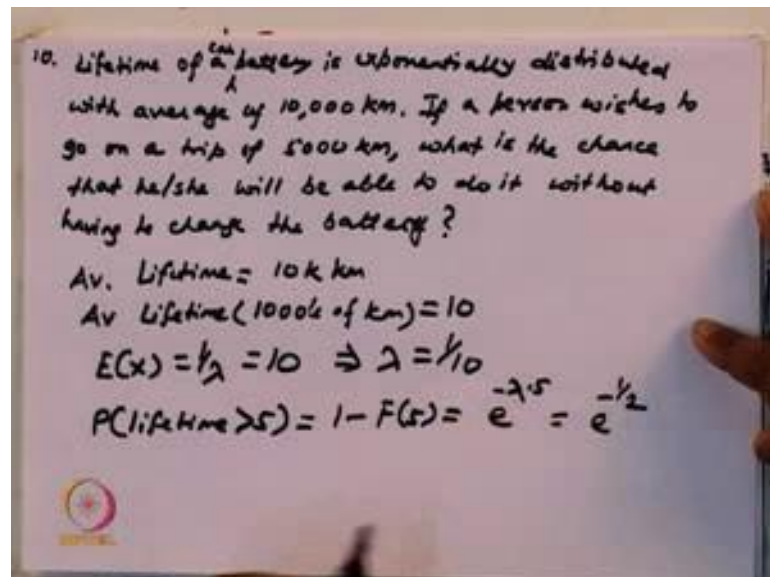 10. Lifetime of a car battery is exponentially distributed
with average of 10,000 km. If a person wishes to
go on a trip of 5000 km, what is the chance
that he/she will be able to do it without
having to change the battery?
Av. Lifetime = 10k km
Av Lifetime (1000's of km) = 10
E(X) = 1/λ = 10 ⇒ λ = 1/10
P(lifetime > 5) = 1 - F(5) = e^{-λ·5} = e^{-1/2}